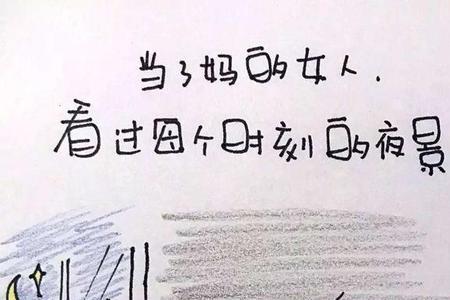 当了妈的女人.
看过每个时刻的夜景